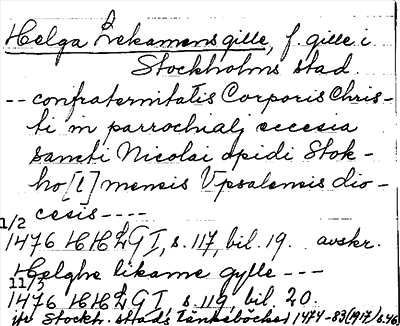 Helga Lekamens gille, f. gille i
Stockholms stad
-- confraternitatis Corporis Chris-
ti in parrochialj eccesia
sancti Nicolai opidi Stok-
ho[l]mensis Vpsalensis dio-
cesis----
1/2
1476 HHLG I, s. 117, bil. 19. avskr.
Helghe likame gylle ---
11/3
1476 HHLG I, s. 119, bil. 20.
Stockh. stads Tänkeböcker 1474-83 (1917) s. 46